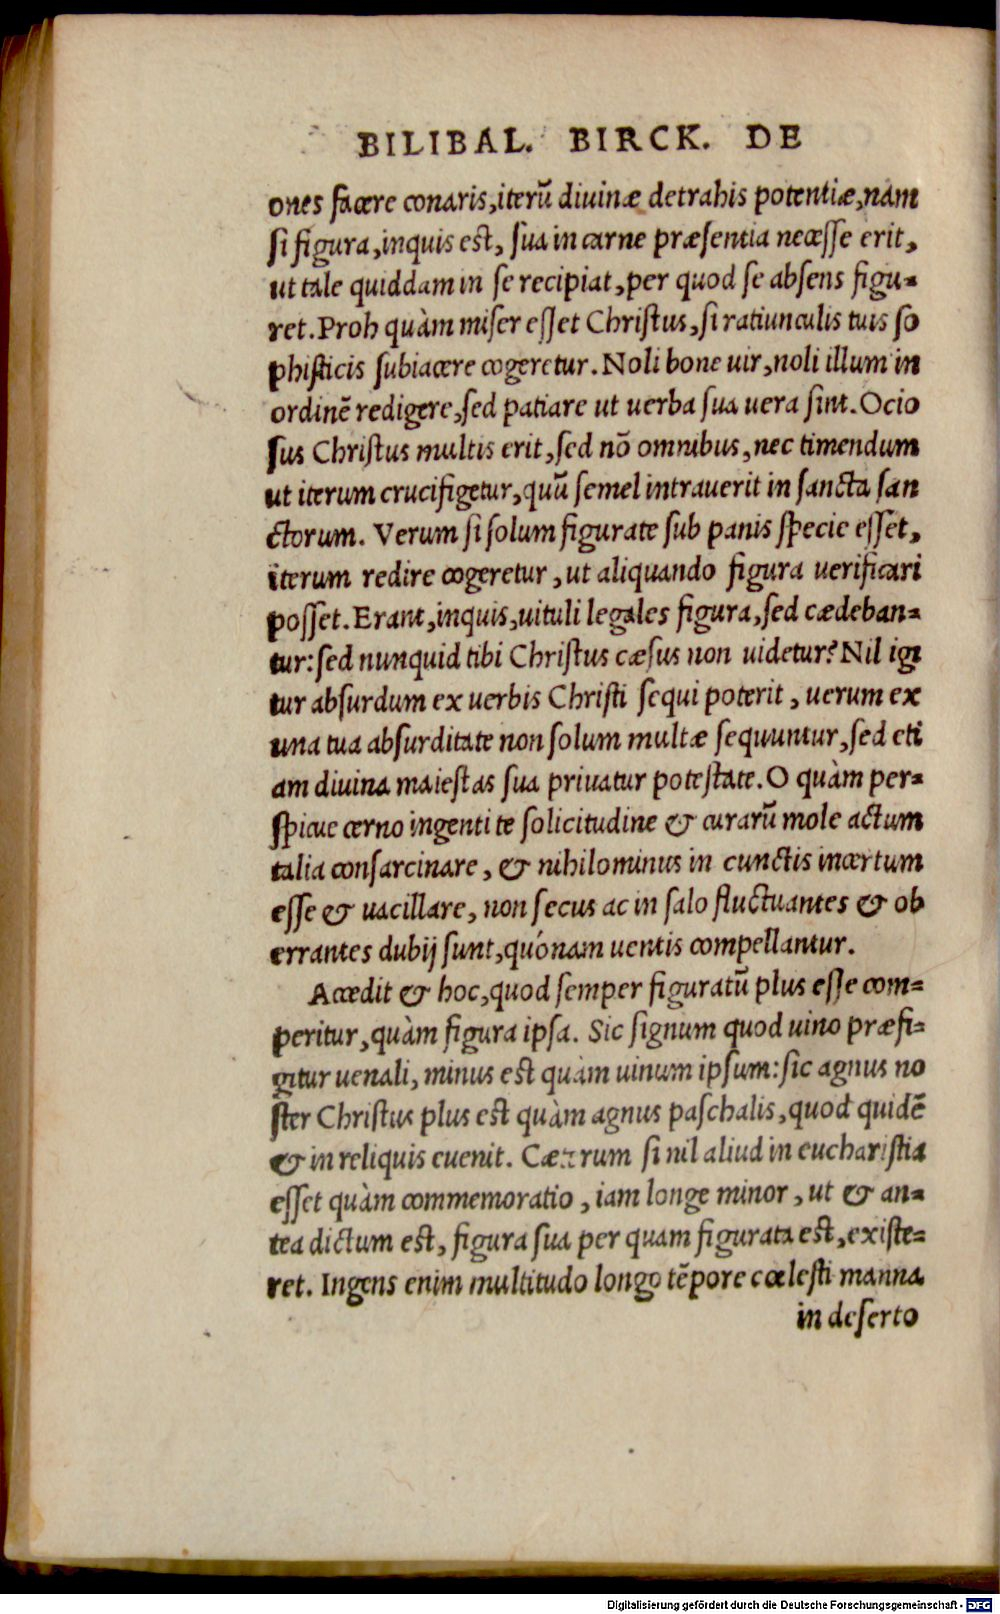 BILIBAL. BIRCK. DE
ones facere conaris, iterū diuinæ detrahis potentiæ, nam
si figura, inquis est, sua in carne præsentia necesse erit,
ut tale quiddam in se recipiat, per quod se absens figu=
ret. Proh quàm miser esset Christus, si ratiunculis tuis so
phisticis subiacere cogeretur. Noli bone uir, noli illum in
ordinē redigere, sed patiare ut uerba sua uera sint. Ocio
sus Christus multis erit, sed nō omnibus, nec timendum
ut iterum crucifigetur, quū semel intrauerit in sancta san
ctorum. Verum si solum figurate sub panis specie esset,
iterum redire cogeretur, ut aliquando figura uerificari
posset. Erant, inquis, uituli legales figura, sed cædeban=
tur: sed nunquid tibi Christus cæsus non uidetur? Nil igi
tur absurdum ex uerbis Christi sequi poterit, uerum ex
una tua absurditate non solum multæ sequuntur, sed eti
am diuina maiestas sua priuatur potestate. O quàm per=
spicue cerno ingenti te solicitudine & curarū mole actum
talia consarcinare, & nihilominus in cunctis incertum
esse & uacillare, non secus ac in salo fluctuantes & ob
errantes dubij sunt, quónam uentis compellantur.
Accedit & hoc, quod semper figuratū plus esse com=
peritur, quàm figura ipsa. Sic signum quod uino præfi=
gitur uenali, minus est quàm uinum ipsum: sic agnus no
ster Christus plus est quàm agnus paschalis, quod quidē
& in reliquis euenit. Cæterum si nil aliud in eucharistia
esset quàm commemoratio, iam longe minor, ut & an=
tea dictum est, figura sua per quam figurata est, existe=
ret. Ingens enim multitudo longo tēpore cœlesti manna
in deserto
Digitalisierung gefördert durch die Deutsche Forschungsgemeinschaft - DFG